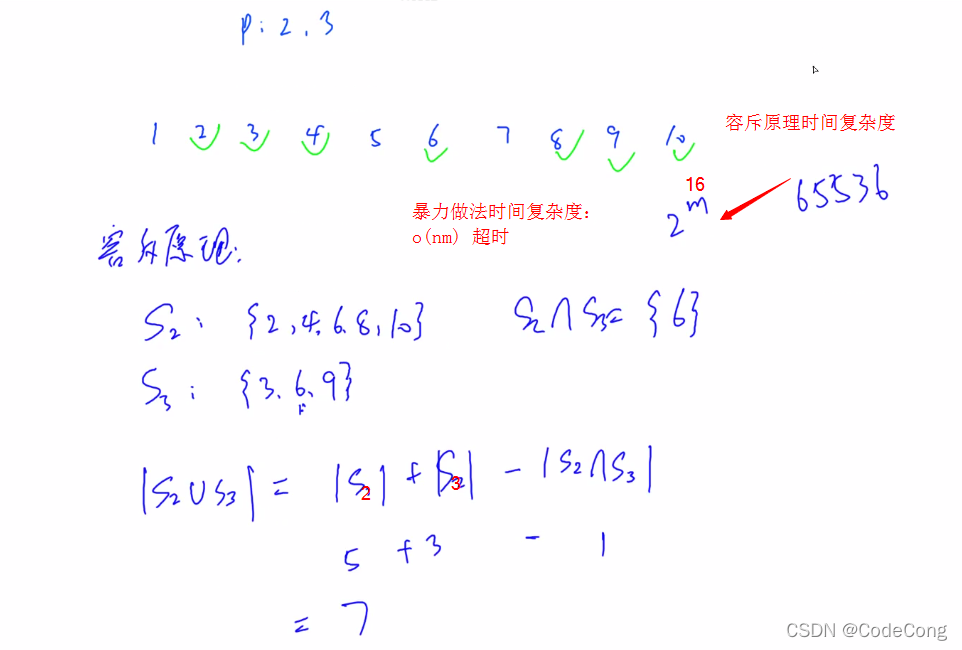 p: 2, 3
1 2 3 4 5 6 7 8 9 10
容斥原理时间复杂度
16
2^m
65536
暴力做法时间复杂度:
o(nm) 超时
容斥原理:
S₂: {2,4,6,8,10}
S₂∩S₃= {6}
S₃: {3,6,9}
|S₂∪S₃| = |S₂| + |S₃| - |S₂∩S₃|
5 + 3 - 1
= 7
CSDN @CodeCong